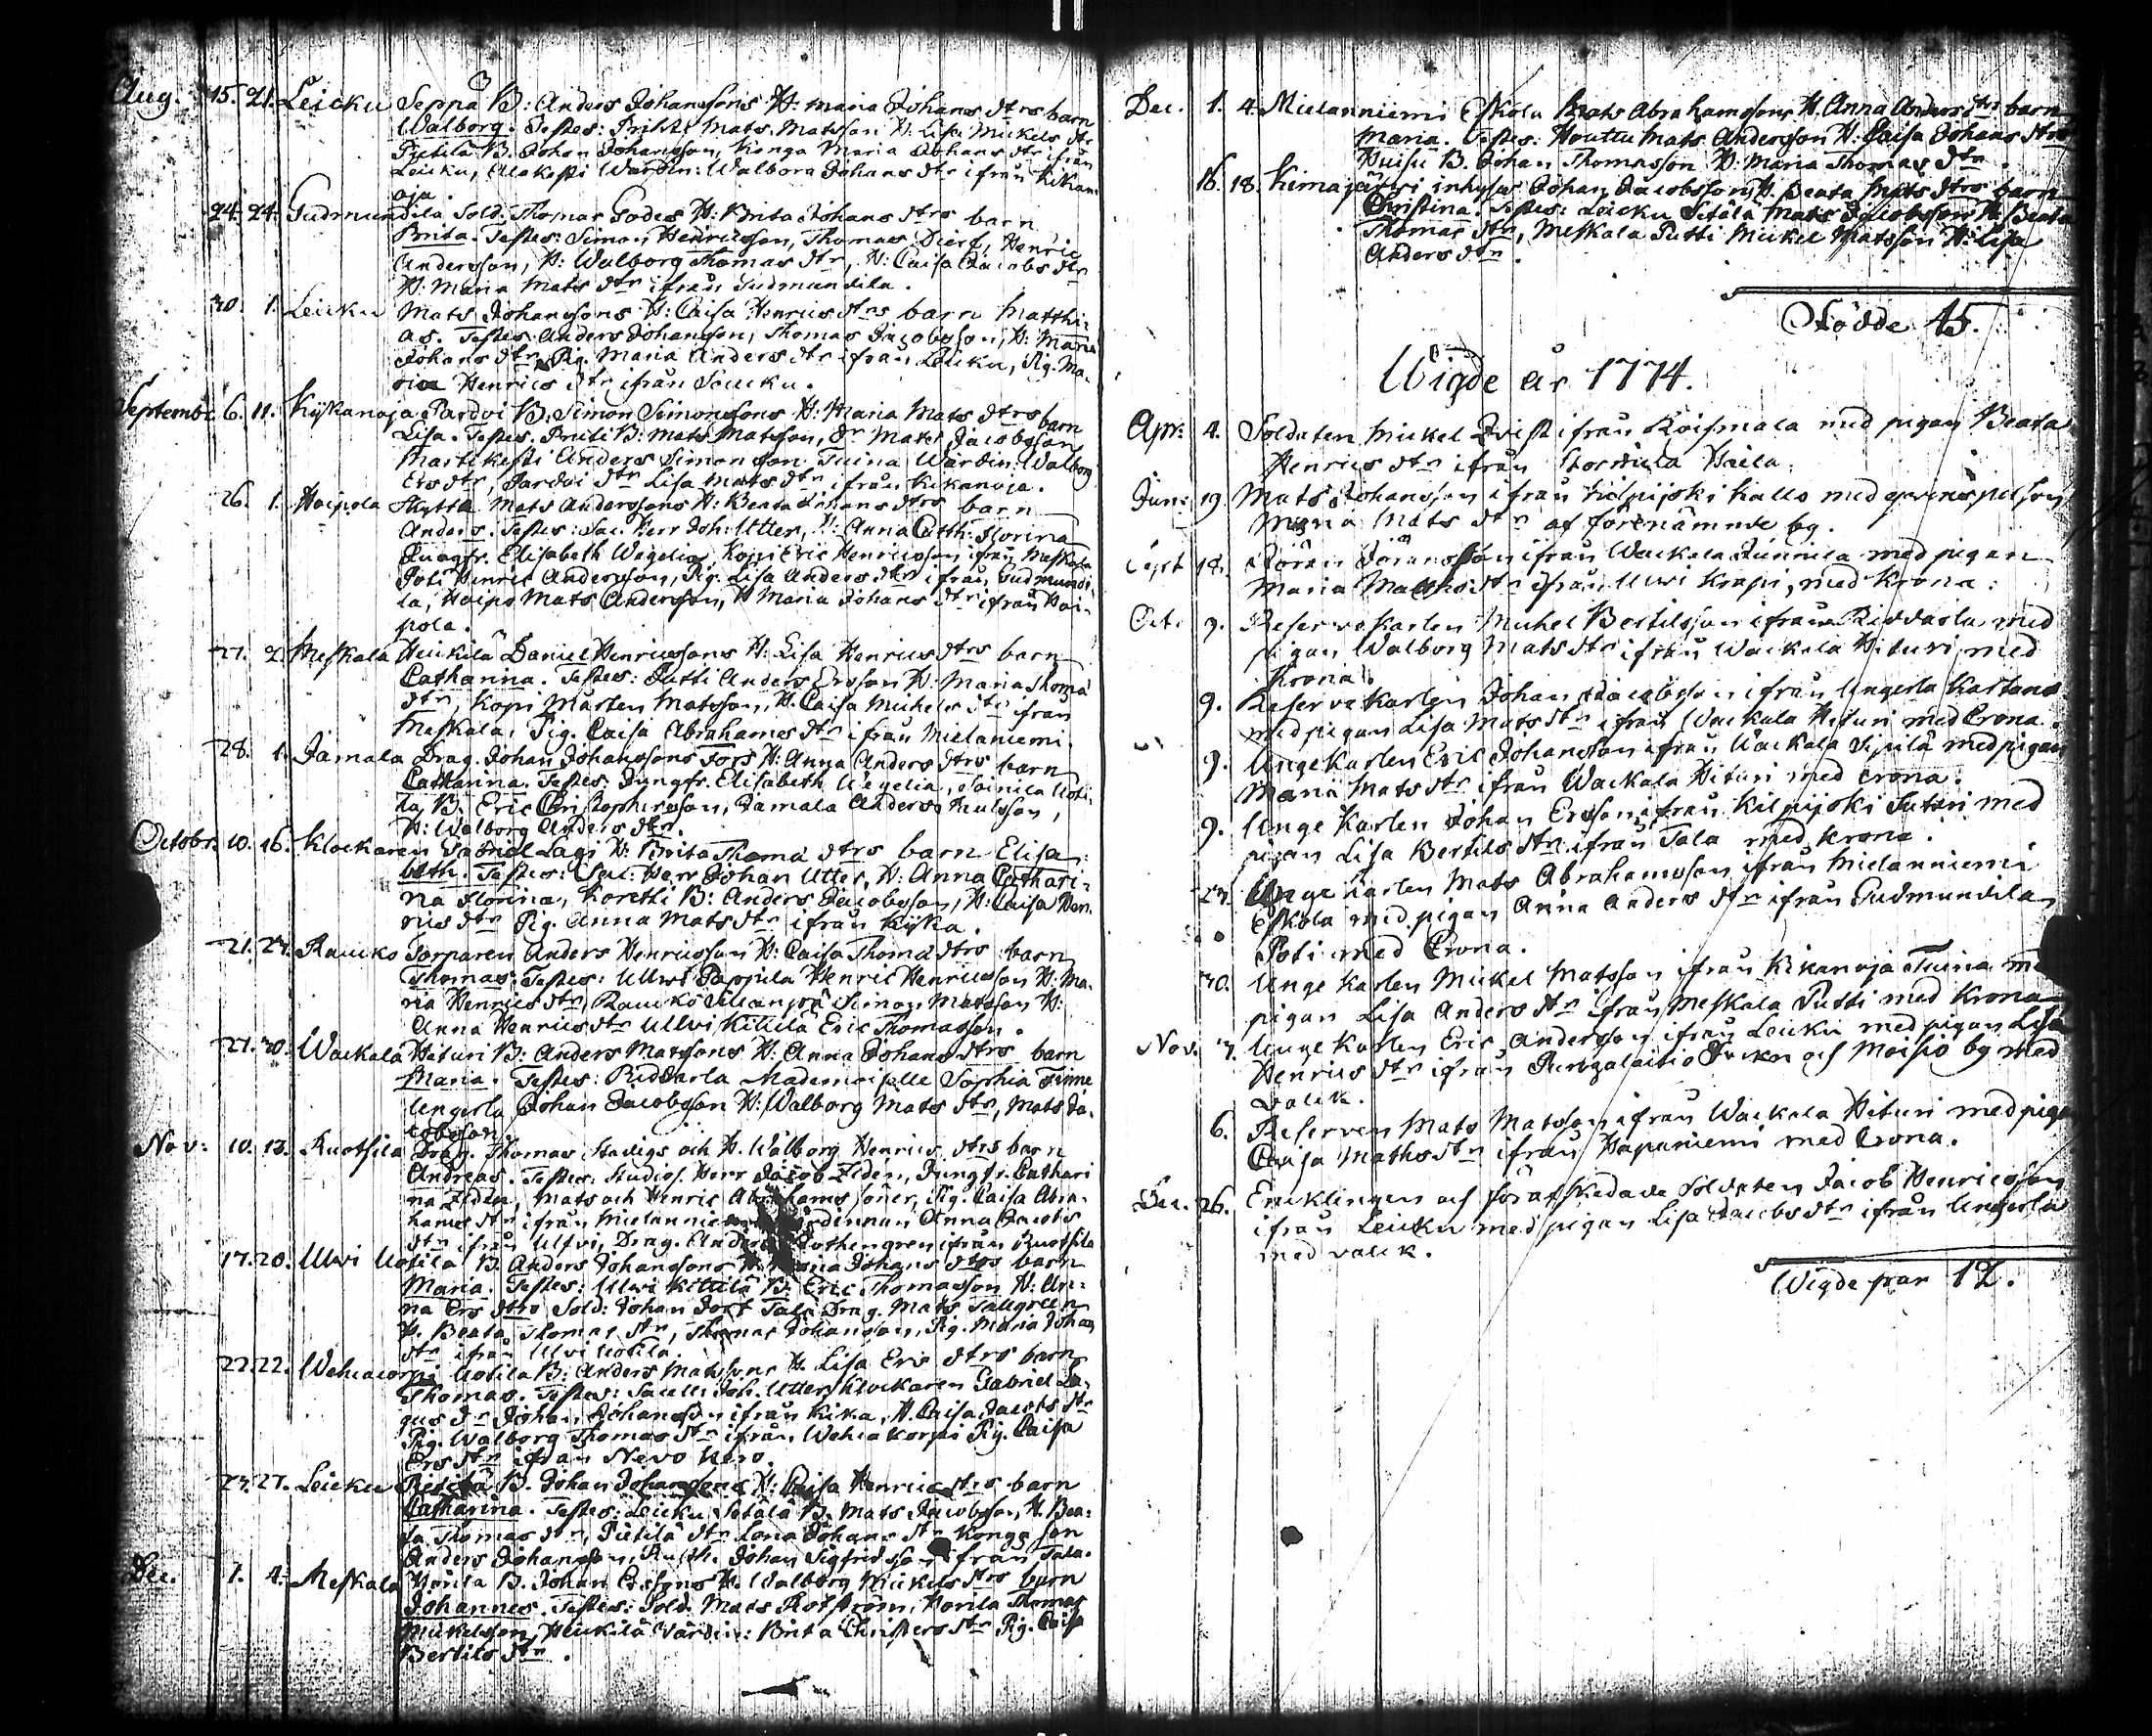 Aug. 15. 21. Leicku Seppä B: Anders Johanssons H: Maria Johans dtrs barn
Walborg. Testes: Prihti Mats Matsson H: Lisa Mickels dtr
Pietilä B. Johan Johansson, Konga Maria Johans dtr ifrån
Leicku, Alakesti Wärdin: Walborg Johans dtr ifrån Kikan
oja.
24. 24. Gudmundila Sold. Thomas Godes H: Brita Johans dtrs barn
Brita. Testes: Simon Henricsson, Thomas Dierf, Henric
Andersson, H: Walborg Thomas dtr, H: Caisa Jacobs dtr
H: Maria Mats dtr ifrån Gudmundila.
30. 1. Leicku Mats Johanssons H: Caisa Henrics dtrs barn Matthi:
as. Testes: Anders Johansson, Thomas Jacobsson, H: Maria
Johans dtr, Pig. Maria Anders dtr ifrån Leicku, Pig. Ma:
ria Henrics dtr ifrån
Septembr. 6. 11. Kijkanoja Pardvi B. Simon Simonssons H: Maria Mats dtrs barn
Lisa. Testes. Priti B: Mats Matsson, Dr Mats Jacobsson
Martikesti Anders Simonsson Tuina Wärdin: Walborg
Ers dtr, Pardvi dtr Lisa Mats dtr ifrån Kikanoja.
26. 1. Hoipola Skytta Mats Anderssons H: Beata Johans dtrs barn
Anders. Testes: Sac. Herr Joh: Utter, H: Anna Cath: Florina
Jungfr. Elisabeth Wegelia, Kopi Eric Henricsson ifrån Meskala
Poti Henric Andersson, Pig. Lisa Anders dtr ifrån Gudmundi
la, Hoipo Mats Andersson, H Maria Johans dtr ifrån Hoi-
pola.
27. 2. Meskala Heikilä Daniel Henricssons H: Lisa Henrics dtrs barn
Catharina. Testes: Putti Anders Ersson H: Maria Thoma
dtr, Kopi Mårten Matsson, H. Caisa Michels dtr ifrån
Meskala, Pig. Caisa Abrahams dtr ifrån Mielaniemi.
28. 1. Jamala Drag. Johan Johanssons Fors H: Anna Anders dtrs barn
Catharina. Testes: Jungfr. Elisabeth Wegelia, Uoti
la B: Eric Christophersson, Jamala Anders
H: Walborg Anders dtr.
Octobr. 10. 16. Klockaren Gabriel Lagi H: Brita Thoma dtrs barn Elisa:
beth. Testes: Sac: Herr Johan Utter, H: Anna Cathari:
na Florina, Koretti B: Anders Jacobsson, H: Caisa Hen:
rics dtr Pig. Anna Mats dtr ifrån Kijka.
21. 23. Raucko Torparen Anders Henricsson H: Caisa Thoma dtrs barn
Thomas. Testes: Ullwi Pappila Henric Henricsson H: Ma:
ria Henrics dtr, Raucko Simon Matsson H:
Anna Henrics dtr Ullvi Kittilä Eric Thomasson.
27. 30. Wackala Hituri B: Anders Matssons H: Anna Johans dtrs barn
Maria. Testes: Riddarla Mademoiselle Sophia Finne
Ungerla Johan Jacobsson H: Walborg Mats dtr, Mats Ja:
cobsson
Nov: 10. 13. Ruotsila Drag. Thomas Stadigs och H. Walborg Henrics dtrs barn
Andreas. Testes: Studios. Herr Jacob Ziden, Jungfr. Cathari
na Ziden, Mats och Henric Abrahams söner, Pig. Caisa Abra-
hams dtr ifrån Mielanniemi Anna Jacobs
dtr ifrån Ulfvi, Drag. Anders ifrån Ruotsila
17. 20. Ulvi Uotila B. Anders Johanssons H. Johans dtrs barn
Maria. Testes: Ulwi Kittilä B: Eric Thomasson H: An:
na Ers dtr, Sold: Johan Tala Drag. Mats Tallgreen
H. Beata Thomas dtr, Thomas Johansson, Pig. Maria Johans
dtr ifrån Ulvi Uotila.
22. 22. Wehucorpi Uotila B: Anders Matssons H. Lisa Ers dtrs barn
Thomas. Testes: Sacell: Joh. Utter, Klockaren Gabriel La:
gus dr Johan Johansson ifrån Kika, H. Caisa Jacobs dtr
Pig. Walborg Thomas dtr ifrån Wehukorpi Pig. Caisa
Ers dtr ifrån
23. 27. Leicku Pietilä B. Johan Johanssons H: Caisa Henrics dtrs barn
Catharina. Testes: Leicku Setälä B. Mats Jacobsson, H. Bea:
ta Thomas dtr, Pietilä dtr Lena Johans dtr Konga son
Anders Johansson, Rusth. Johan Sigfridsson ifrån Tala.
Dec. 1. 4. Meskala Horila B. Johan Erssons H. Walborg Mickels dtrs barn
Johannes. Testes: Sold. Mats Rotström, Horila Thomas
Mickelsson, Heickilä Wärdin: Brita Christers dtr Pig. Caisa
Bertils dtr.
Dec. 1. 4. Mielanniemi Eskola Mats Abrahamssons H. Anna Anders dtrs barn
Maria. Testes: Houttu Mats Andersson H: Caisa Johans dtr
B. Johan Thomasson H. Maria Thomas dtr.
16. 18. Kimajärvi inhyses Johan Jacobssons H. Beata Mats dtrs barn
Christina. Testes: Leicku Setälä Mats Jacobsson H. Beata
Thomas dtr, Meskala Putti Mickel Matsson H: Lisa
Anders dtr.
Födde 45.
Wigde år 1774.
Apr: 4. Soldaten Mickel Qvist ifrån Roismala med pigan Beata
Henrics dtr ifrån Haila.
Jun: 19. Mats Johansson ifrån Kilpijoki Kallo med qvinspersson
Maria Mats dtr af förenämnde by.
Sept 18. Jöran Jöransson ifrån Wackala Junnila med pigan
Maria Matths dtr ifrån Ulwi Krapi, med Krona.
Oct: 9. Reserve Karlen Michel Bertilsson ifrån Riddarla med
pigan Walborg Mats dtr ifrån Wackala Hituri med
Krona.
9. Reserve Karlen Johan Jacobsson ifrån Ungerla Kartano
med pigan Lisa Mats dtr ifrån Wackala Hituri med Crona.
9. Unge Karlen Eric Johansson ifrån Wackala Sipilä med pigan
Maria Mats dtr ifrån Wackala Hituri med Crona.
9. Unge Karlen Johan Ersson ifrån Kilpijoki Tuturi med
pigan Lisa Bertils dtr ifrån Tala med krona.
23. Unge Karlen Mats Abrahamsson ifrån Mielanniemi
Eskola med pigan Anna Anders dtr ifrån Gudmundila
Poti med Crona.
30. Unge Karlen Mickel Matsson ifrån Kikanoja Tuina me
pigan Lisa Anders dtr ifrån Meskala Putti med Krona
Nov. 3. Unge Karlen Eric Andersson ifrån Leicku med pigan Lisa
Henrics dtr ifrån och Moisio by med
valck.
6. Reserven Mats Matsson ifrån Wackala Hituri med piga
Caisa Maths dtr ifrån Hapaniemi med Crona.
Dec. 26. Encklingen och förafskedade Soldaten Jacob Henricsson
ifrån Leicku med pigan Lisa Jacobs dtr ifrån Ungerla
med valck.
Wigde par 12.